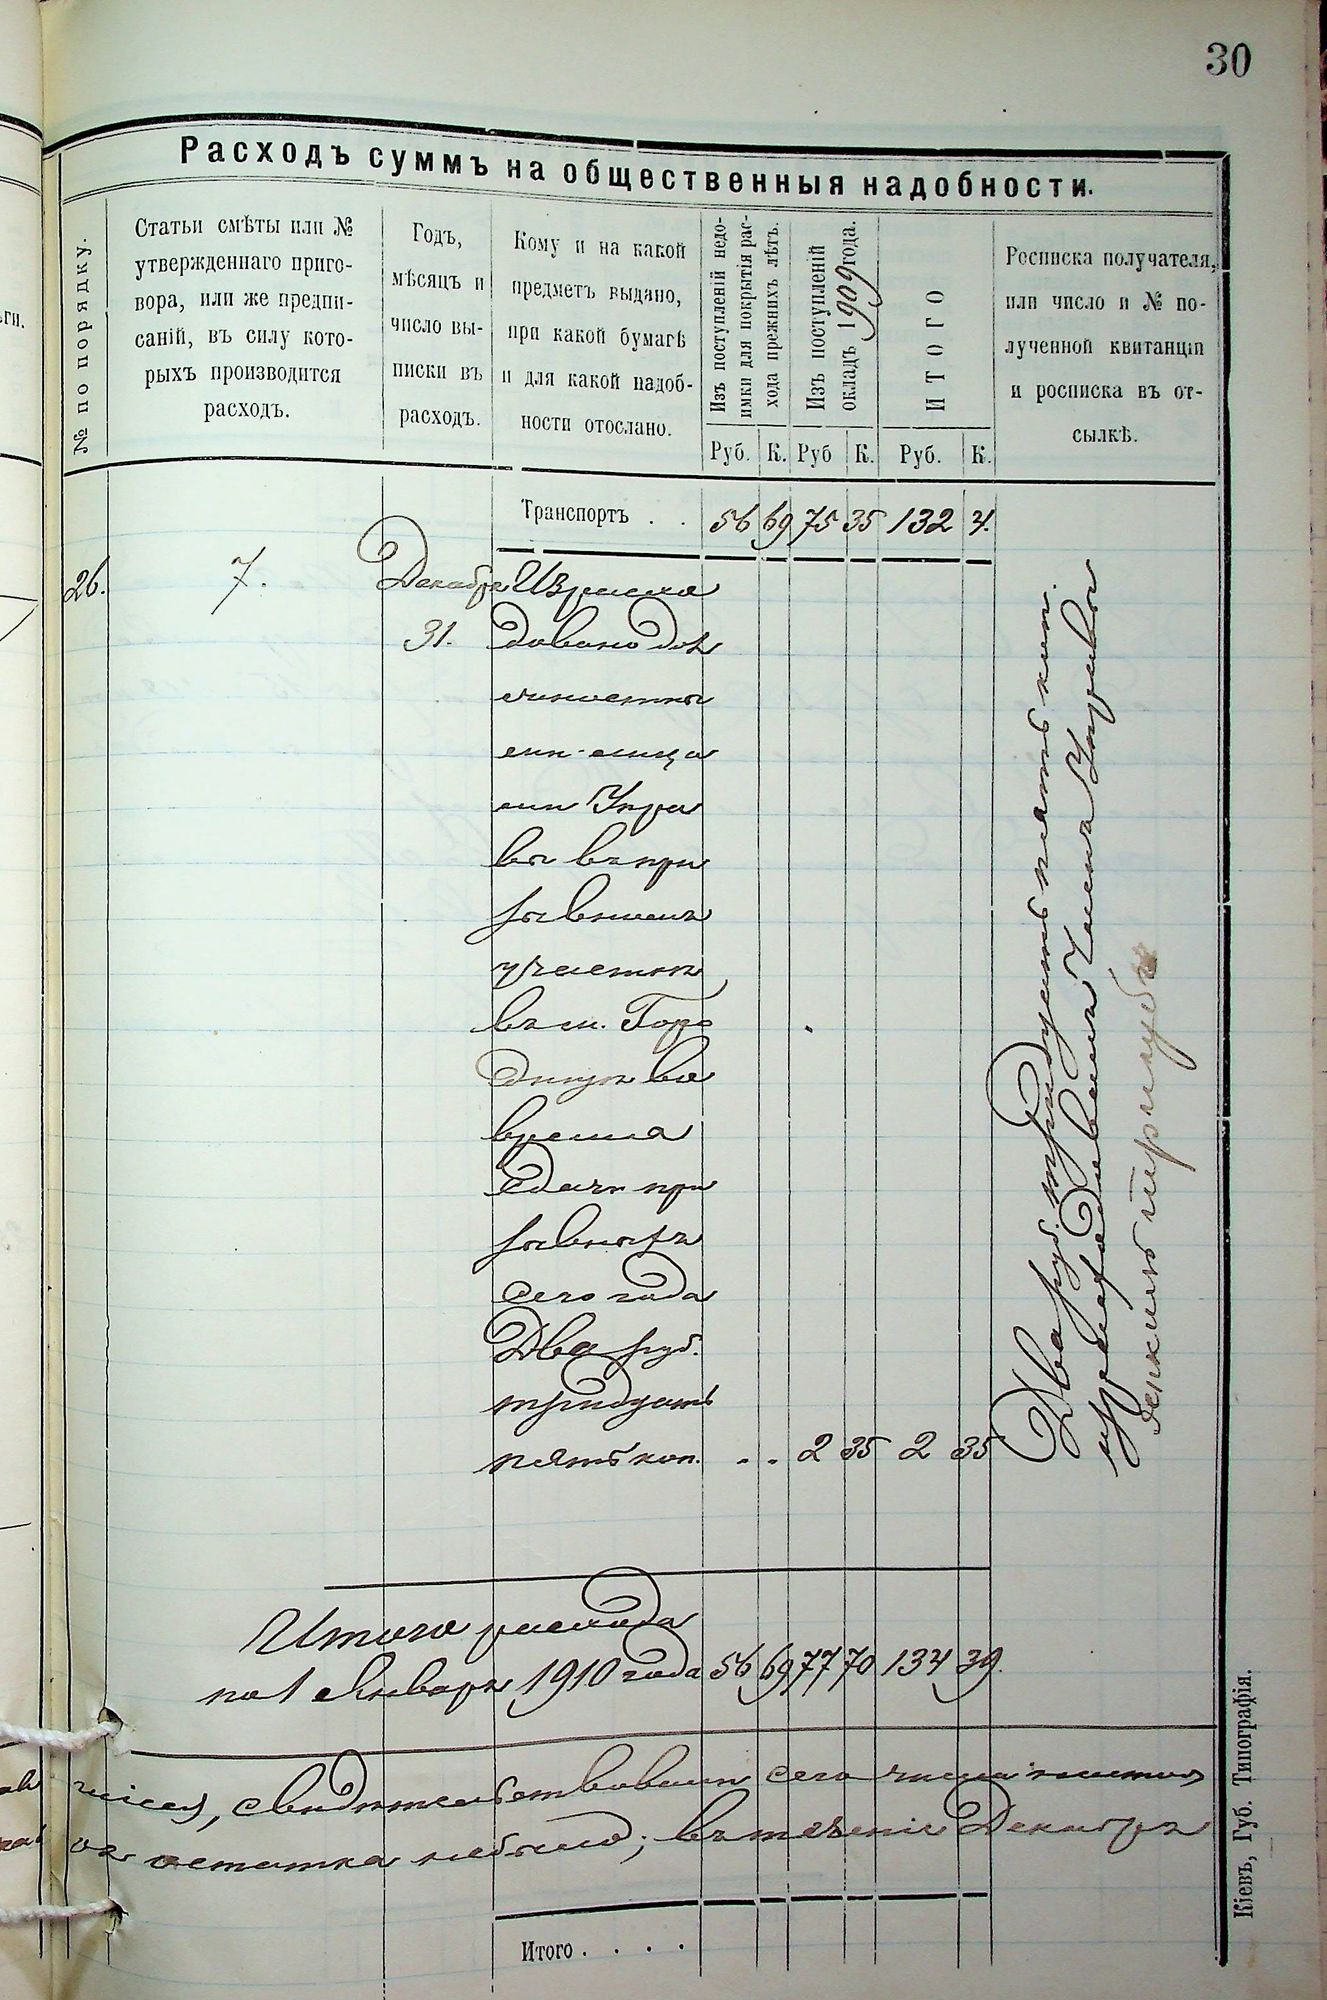 30
Расходъ суммъ на общественныя надобности.
№ по порядку.
Статьи смѣты или №
утвержденнаго приго-
вора, или же предпи-
саній, въ силу кото-
рыхъ производится
расходъ.
Годъ,
мѣсяцъ и
число вы-
писки въ
расходъ.
Кому и на какой
предметъ выдано,
при какой бумагѣ
и для какой надоб-
ности отослано.
Изъ поступленій недо-
имки для покрытія рас-
хода прежнихъ лѣтъ.
Изъ поступленій
окладъ 1909 года.
ИТОГО
Росписка получателя,
или число и № по-
лученной квитанціи
и росписка въ от-
сылкѣ.
Руб. К. Руб К. Руб. К.
Транспортъ . . 56 69 75 35 132 4.
26. 7. Декабря Израсхо
31. довано дол
жностны
ми лица
ми Упра
вы въ при
зывномъ
участкѣ
въ м. Горо
дищѣ во
время
сдачи при
зывныхъ
сего года
Два руб.
тридцать
пять коп. . . 2 35 2 35
Два руб. тридцать пять коп.
израсходовалъ Членъ Управы
Итого расхода
по 1 Января 1910 года 56 69 77 70 134 39.
свидѣтельствовали сего числа
остатка небыло; въ теченіе Декабря
Итого . . . .
Кіевъ, Губ. Типографія.